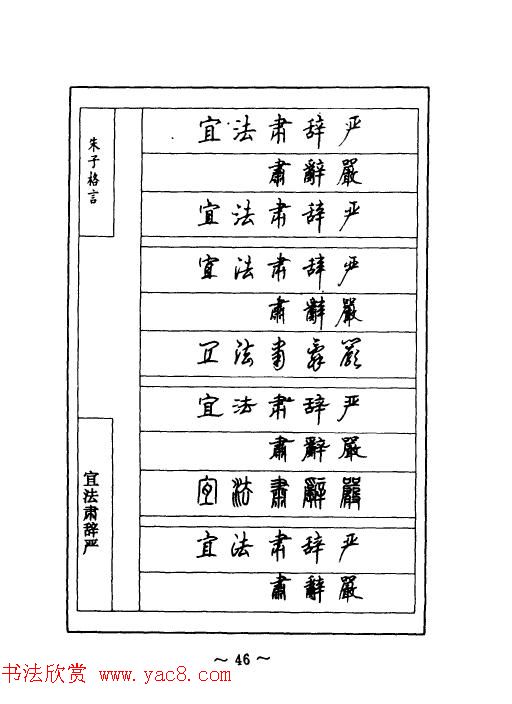 朱子格言
宜法肃辞严
宜法肃辞严
肅辭嚴
宜法肃辞严
宜法肃辞严
肅辭嚴
宜法肃辞嚴
宜法肃辞严
肅辭嚴
宜法肅辭嚴
宜法肃辞严
肅辭嚴
～ 46 ～
书法欣赏 www.yac8.com